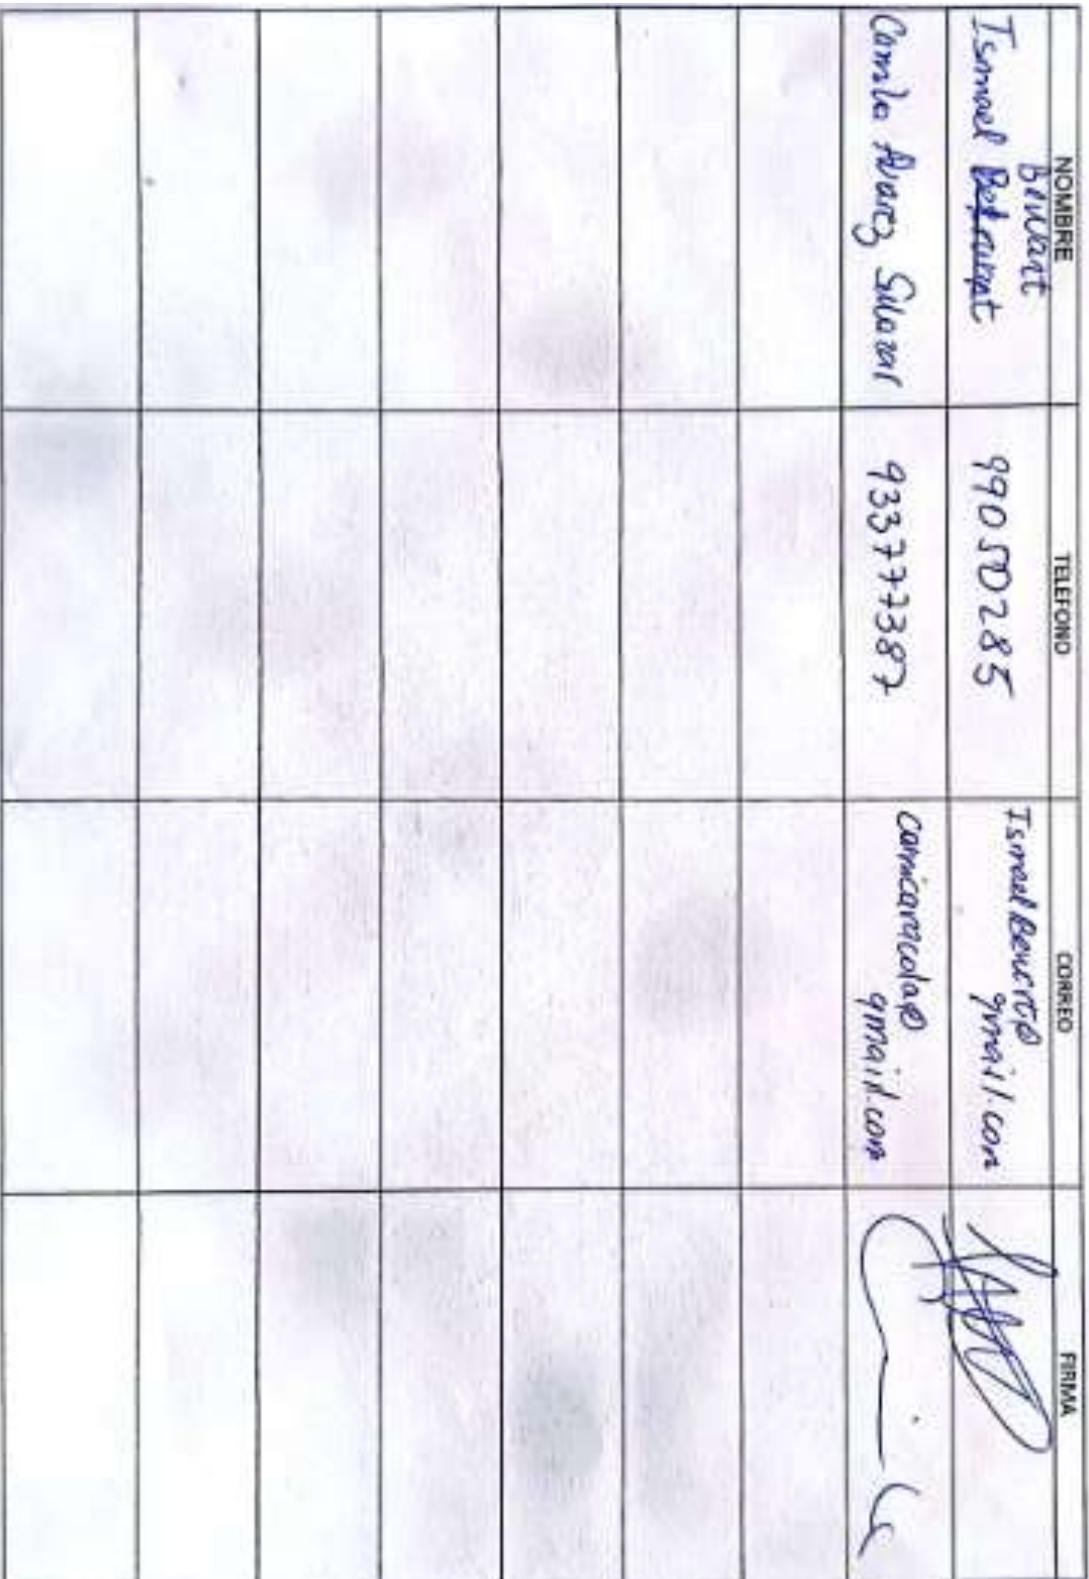 NOMBRE TELEFONO CORREO FIRMA
Ismael 99050285 Ismael
gmail.com
Camila Alvarez Salazar 933777387 camicaracola@
gmail.com